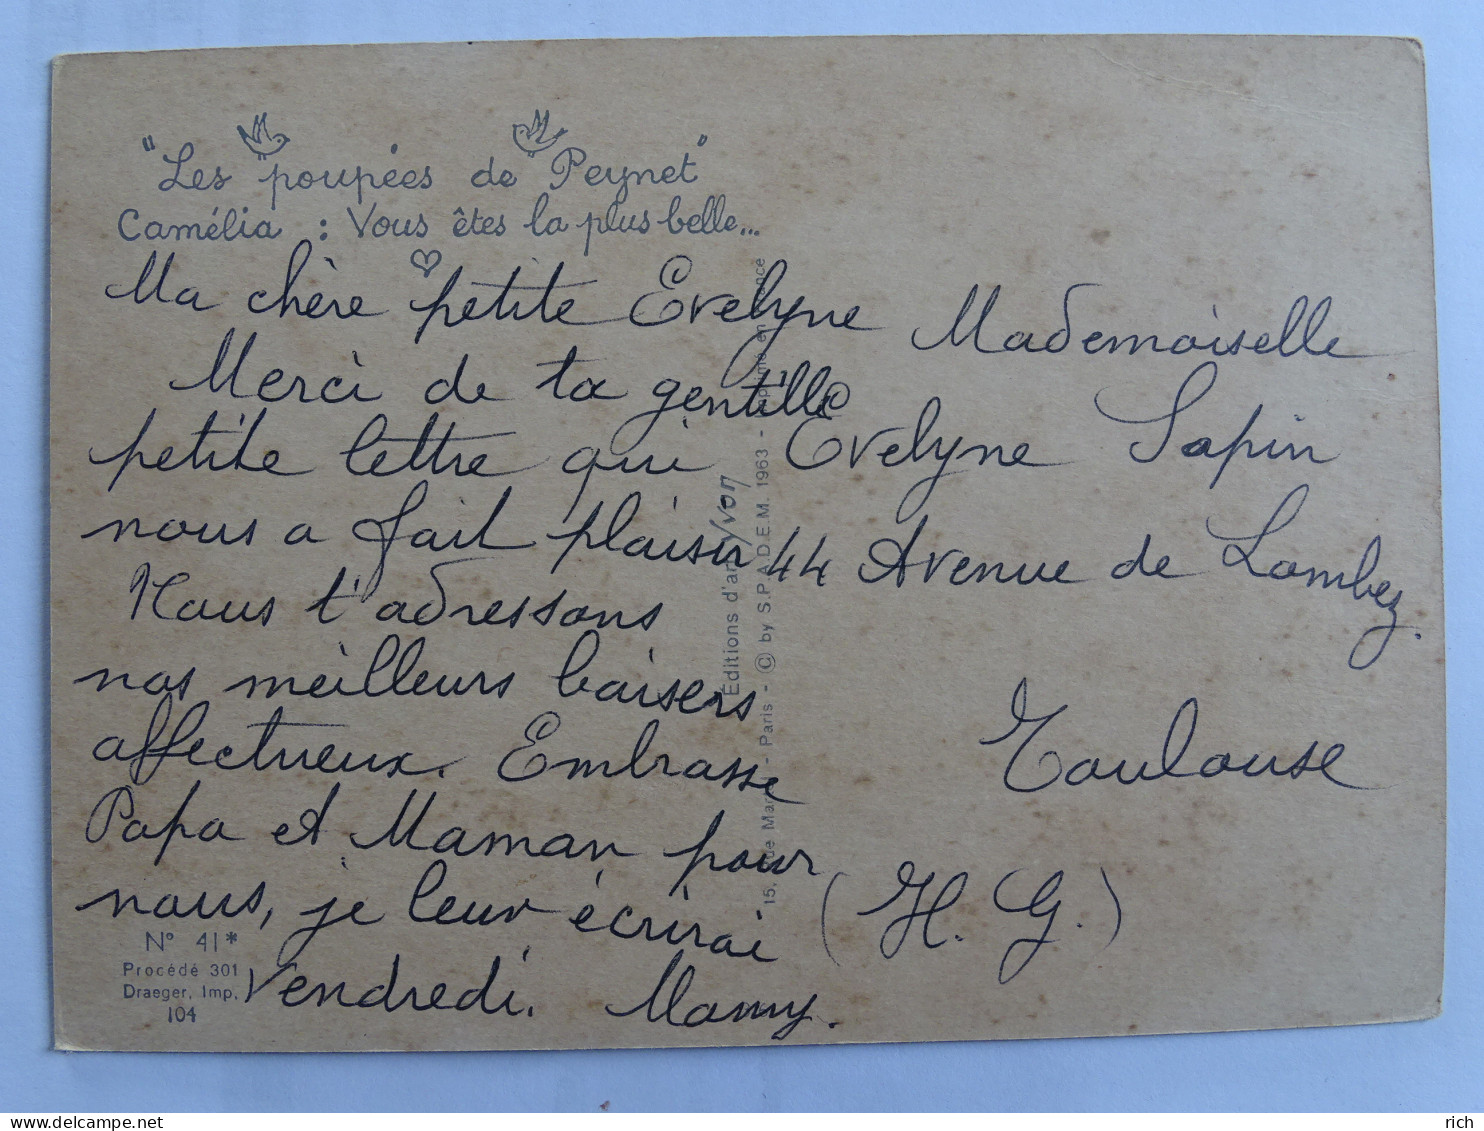 "Les poupées de Peynet"
Camélia : Vous êtes la plus belle...
Ma chère petite Evelyne
Merci de ta gentille
petite lettre qui
nous a fait plaisir
Nous t'adressons
nos meilleurs baisers
affectueux. Embrasse
Papa et Maman pour
nous, je leur écrirai
Vendredi. Mamy.
Mademoiselle
Evelyne Sapin
44 Avenue de Lombez.
Toulouse
(H. G.)
Editions d'art Yvon
15, Rue Mar - Paris - © by S.P.A.D.E.M. 1963 - Imprimé en France
N° 41*
Procédé 301
Draeger, Imp.
104
rich